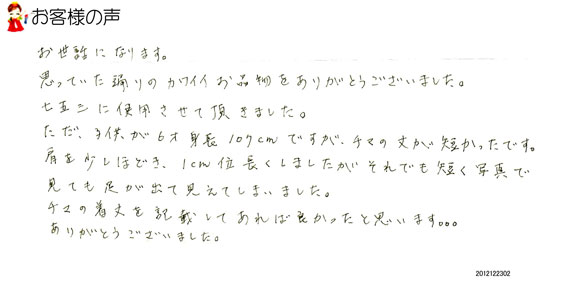 お客様の声
お世話になります。
思っていた通りのカワイイお品物をありがとうございました。
七五三に使用させて頂きました。
ただ、子供が6才身長107cmですが、チマの丈が短かったです。
肩を少しほどき、1cm位長くしましたがそれでも短く写真で
見ても足が出て見えてしまいました。
チマの着丈を記載してあれば良かったと思います。。。
ありがとうございました。
2012122302